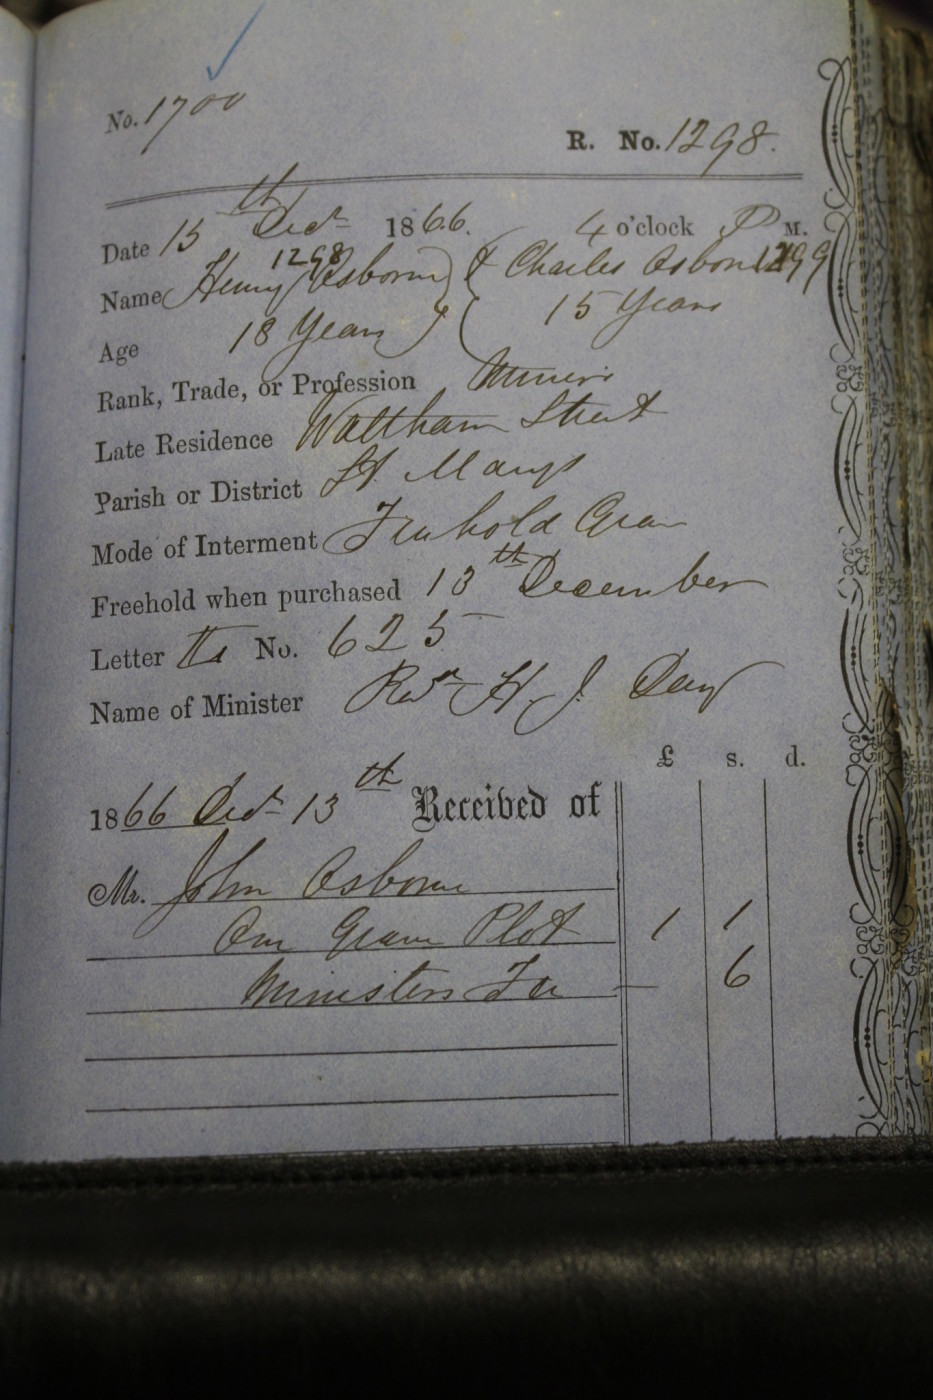 No. 1700
R. No. 1298.
Date 15th Decr 1866. 4 o'clock P M.
1298 1299
Name Henry Osborne & Charles Osborne
Age 18 Years 15 Years
Rank, Trade, or Profession Miners
Late Residence Waltham Street
Parish or District St. Marys
Mode of Interment Freehold Grave
Freehold when purchased 13th December
Letter No. 625
Name of Minister Revd H. J. Day
£ s. d.
1866 Decr 13th Received of
Mr. John Osborne
One Grave Plot 1 1
Ministers Fee — 6